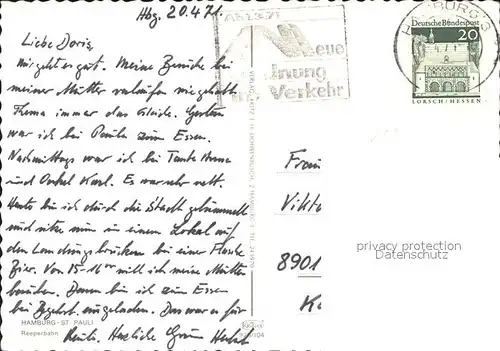 Hbg. 20.4.71.
Liebe Doris,
Mir geht es gut. Meine Besuche bei
meiner Mutter verlaufen wie gehabt.
Thema immer das Gleiche. Gestern
war ich bei Paula zum Essen.
Nachmittags war ich bei Tante Anna
und Onkel Karl. Es war sehr nett.
Heute bin ich durch die Stadt gebummelt
und sitze nun in einem Lokal auf
den Landungsbrücken bei einer Flasche
Bier. Von 15-16 Uhr will ich meine Mutter
besuchen. Dann bin ich zum Essen
bei eingeladen. Das war es für
Herzliche Grüße
HAMBURG-ST. PAULI
Reeperbahn
Ab 23.5.71
neue
nung
im Verkehr
HAMBURG
Deutsche Bundespost
20
LORSCH/HESSEN
Frau
Vikto
8901
K
privacy protection
Datenschutz